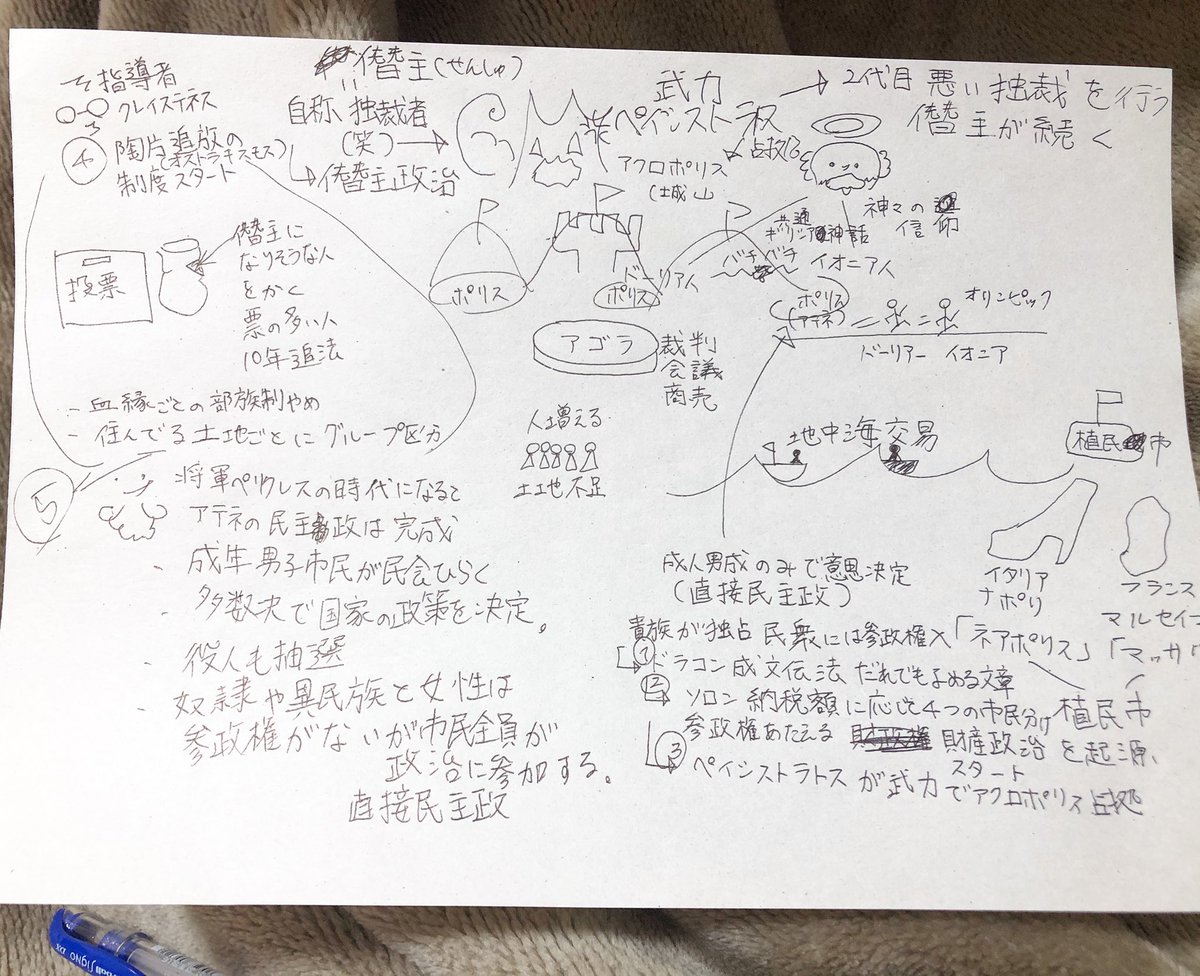 指導者
クレイステネス
④ 陶片追放の
(オストラキスモス)
制度スタート
投票
僭主に
なりそうな人
をかく
票の多い人
10年追法
- 血縁ごとの部族制やめ
- 住んでる土地ごとにグループ区分
僭主(せんしゅ)
自称 独裁者
(笑)→
僭主政治
武力
ペイシストラトス
占拠
アクロポリス
(城山
→2代目 悪い独裁を行う
僭主が続く
神々の
信仰
共通
ギリシア神話
バチバチ
イオニア人
ドーリア人
ポリス
ポリス
ポリス
(アテネ)
オリンピック
ドーリアー イオニア
アゴラ
裁判
会議
商売
人増える
土地不足
地中海交易
植民市
イタリア
ナポリ
フランス
マルセイユ
⑤ 将軍ペリクレスの時代になると
アテネの民主政は完成
- 成年男子市民が民会ひらく
- 多数決で国家の政策を決定。
- 役人も抽選
- 奴隷や異民族と女性は
参政権がないが市民全員が
政治に参加する。
直接民主政
成人男成のみで意思決定
(直接民主政)
貴族が独占 民衆には参政権✕
「ネアポリス」「マッサリ
植民市
① ドラコン 成文伝法 だれでもよめる文章
② ソロン 納税額に応じて4つの市民分け
参政権あたえる 財産政治を起源
スタート
③ ペイシストラトスが武力でアクロポリス占処
ballsigno DX